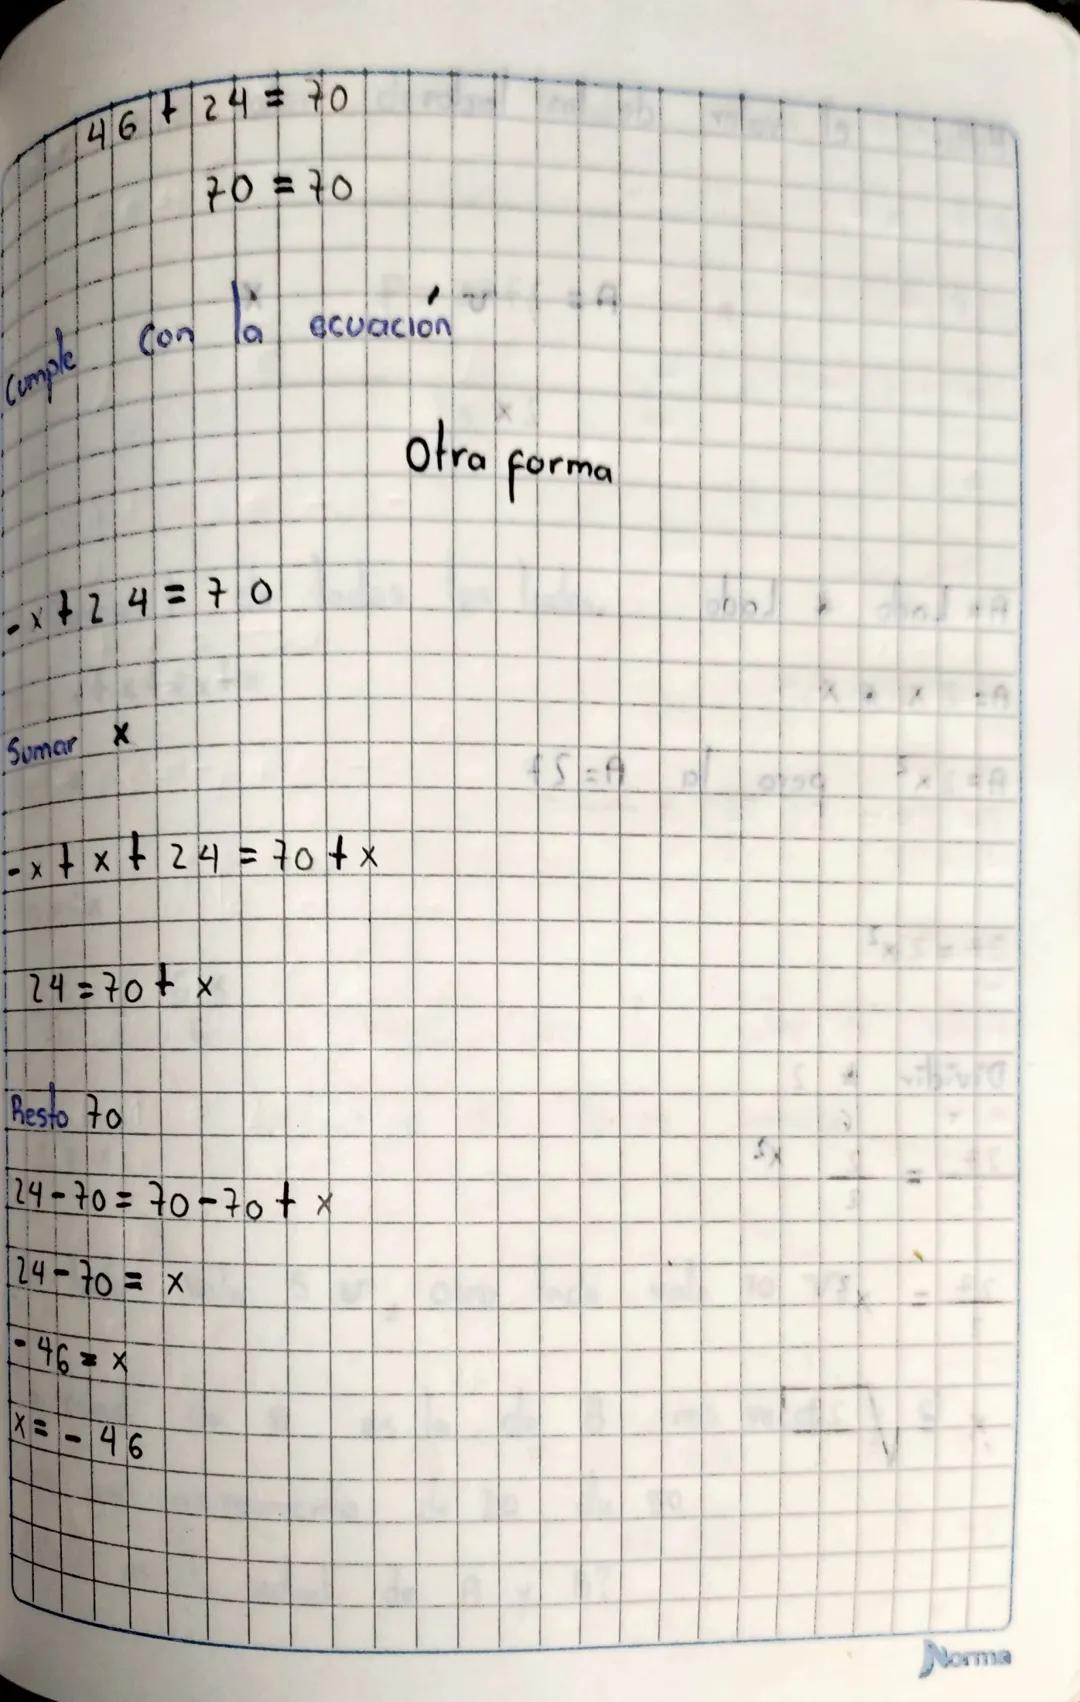 46+24=70
70=70
Cumple con la ecuación
Otra forma
-x+24=70
Sumar x
-x+x+24=70+x
24=70+x
Resto 70
24-70=70-70+x
24-70=x
-46=x
x=-46
Norma